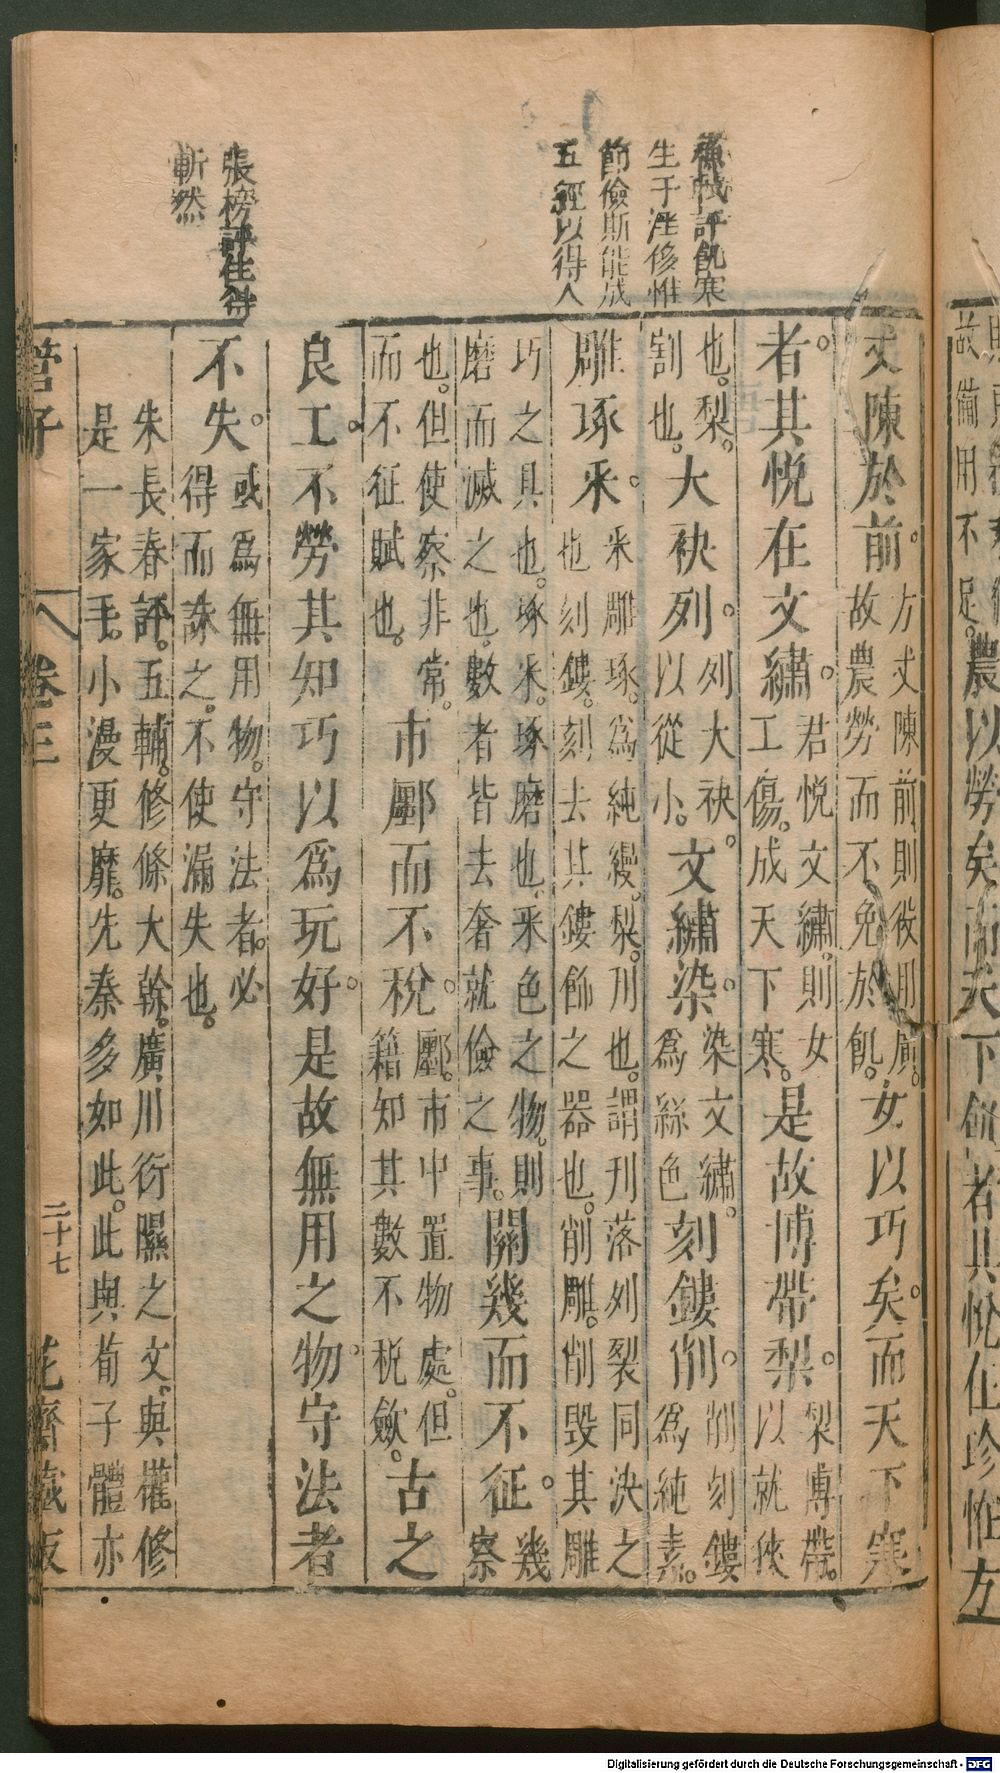 故備用不足農以勞矣而天下飢者其悅在珍怪方
丈陳於前方丈陳前則役用廣故農勞而不免於飢女以巧矣而天下寒
者其悅在文繡君悅文繡則女工傷成天下寒是故博帶梨梨博帶以就狹
也梨割也大袂列列大袂以從小文繡染染文繡為絲色刻鏤削削刻鏤為純素
雕琢采采雕琢為純縵梨刋也謂刋落列裂同決之也刻鏤刻去其鏤飾之器也削雕削毁其雕
巧之具也琢采琢磨也采色之物則磨而滅之也數者皆去奢就儉之事關幾而不征幾察
也但使察非常而不征賦也市鄽而不稅鄽市中置物處但籍知其數不稅斂古之
良工不勞其知巧以爲玩好是故無用之物守法者
不失或爲無用物守法者必得而誅之不使漏失也
朱長春評五輔修條大幹廣川衍隰之文與權修
是一家毛小漫更靡先秦多如此此與荀子體亦
評飢寒
生于淫侈惟
節儉斯能成
五經以得人
張榜評住得
斬然
管子
卷三
二十七
花齋藏板
Digitalisierung gefördert durch die Deutsche Forschungsgemeinschaft - DFG